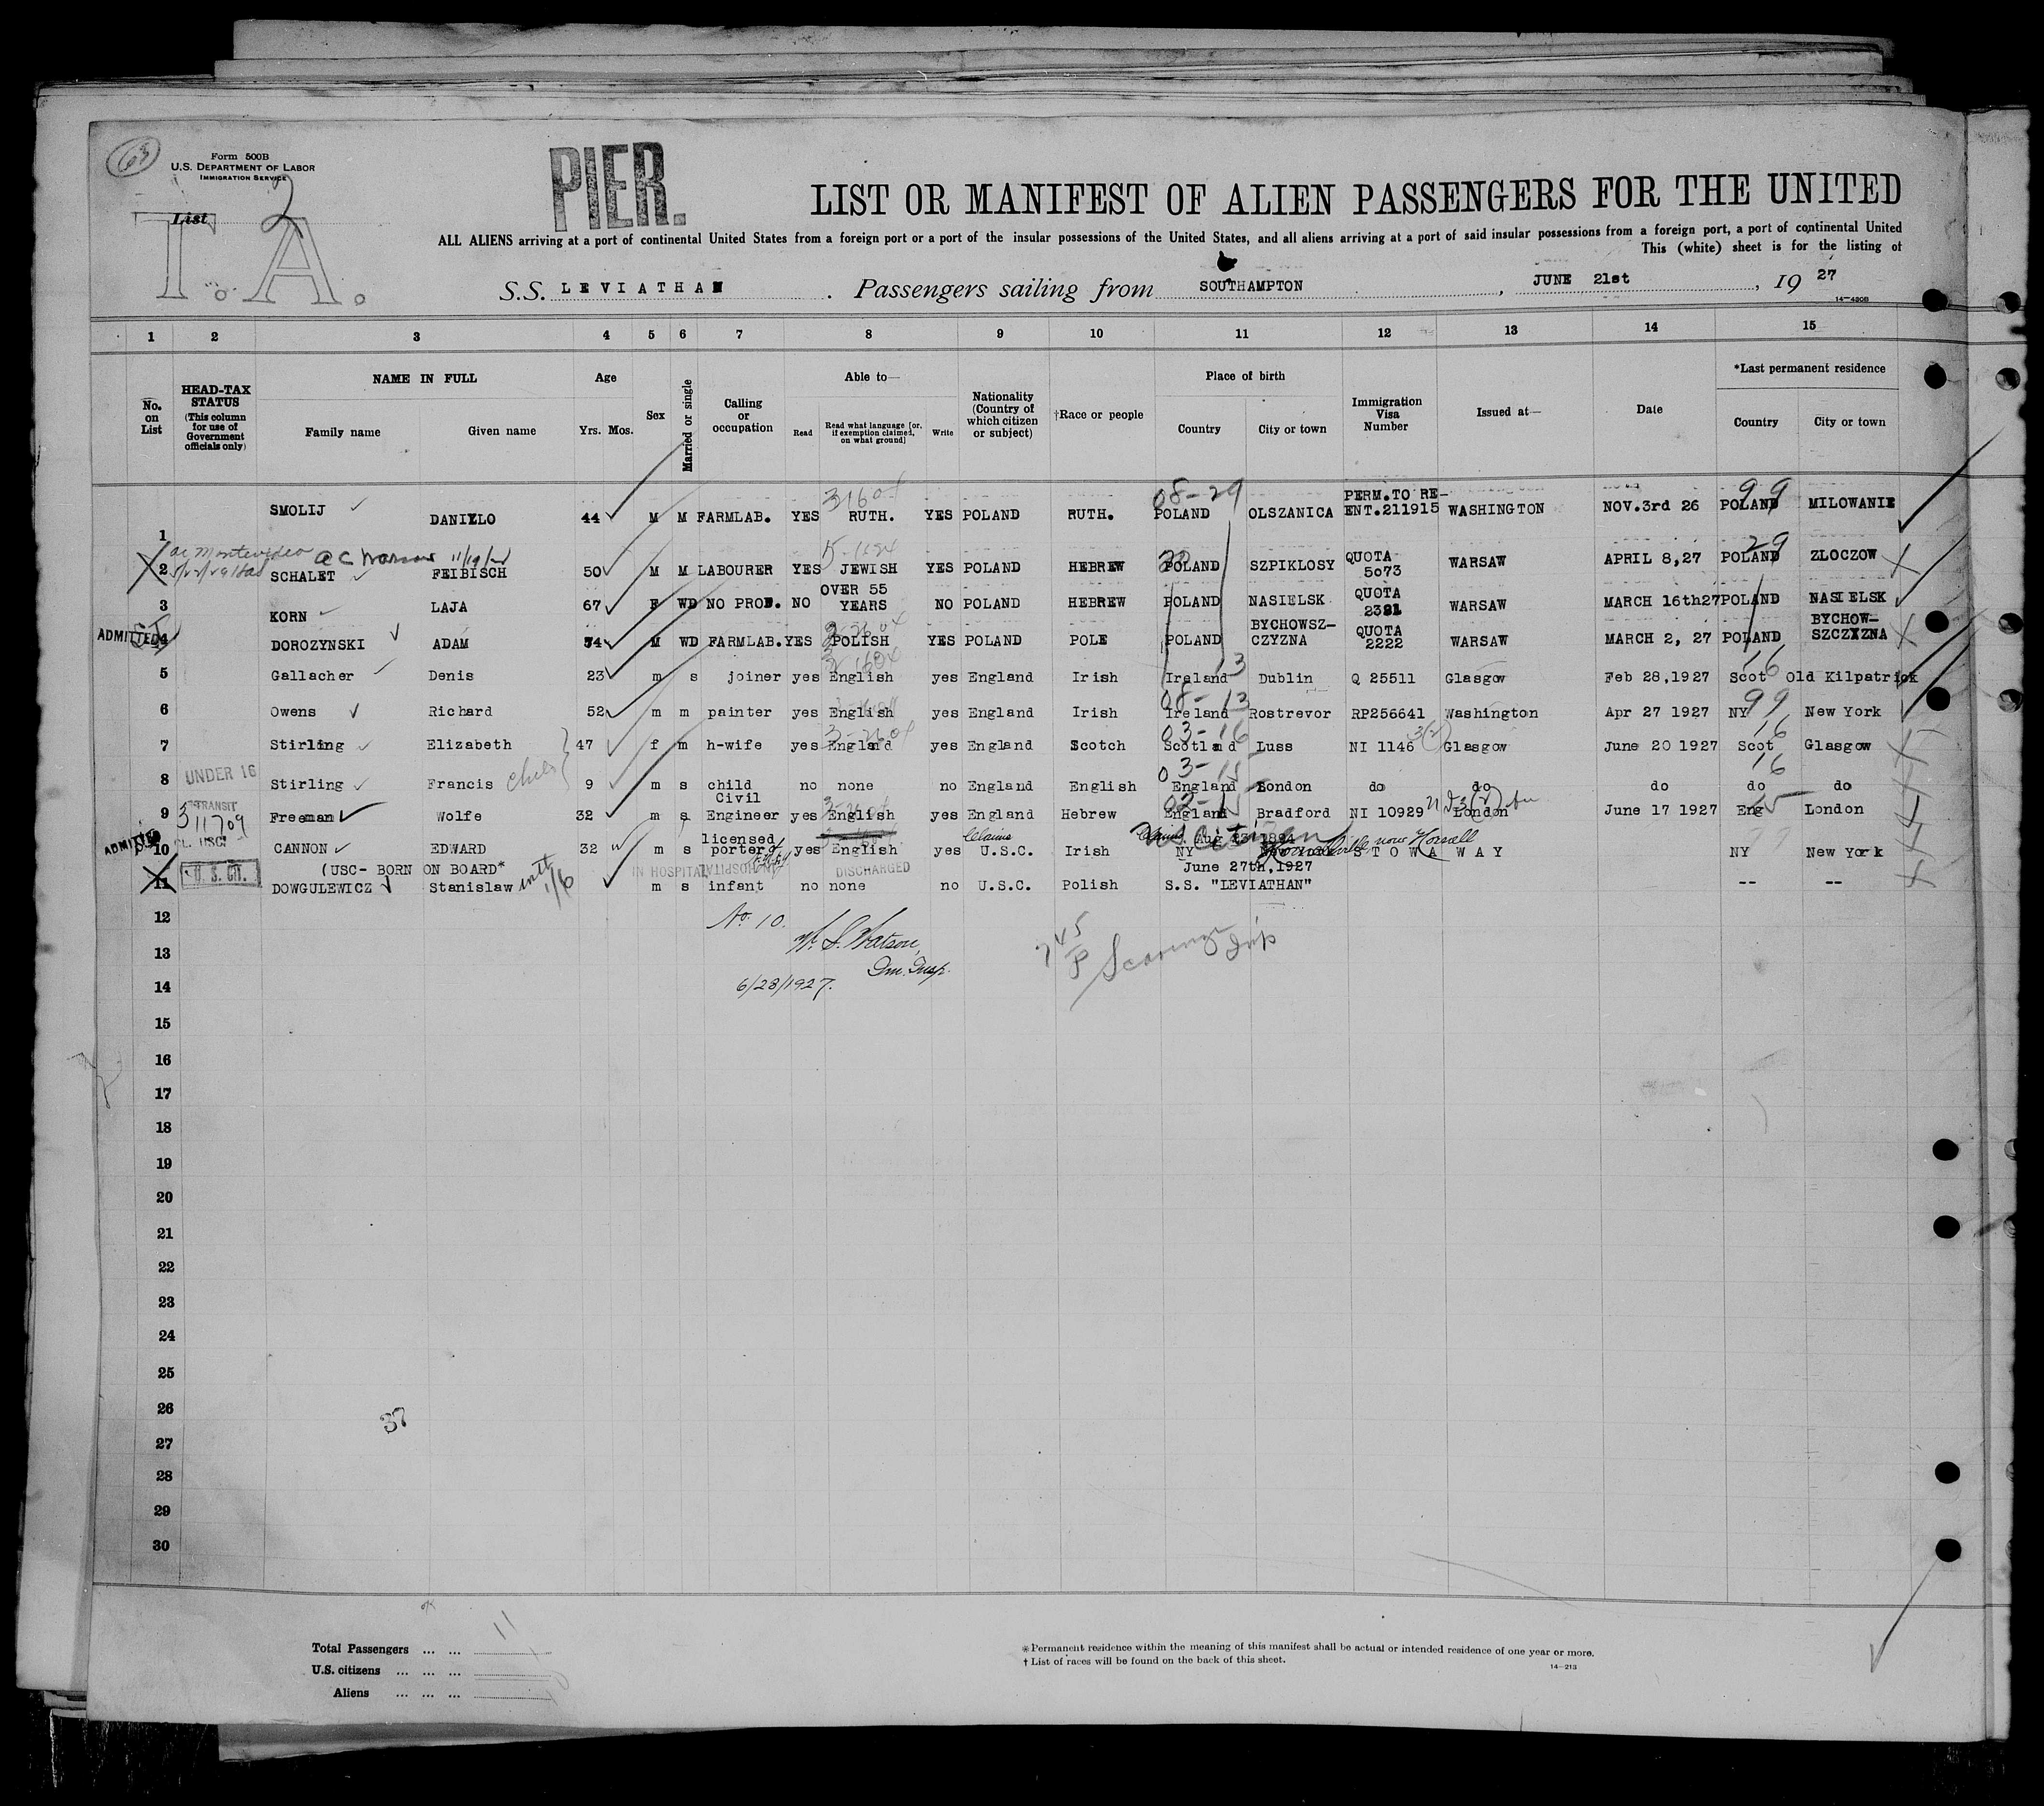 63
Form 500B
U.S. DEPARTMENT OF LABOR
IMMIGRATION SERVICE
List 2
T. A.
PIER.
LIST OR MANIFEST OF ALIEN PASSENGERS FOR THE UNITED
ALL ALIENS arriving at a port of continental United States from a foreign port or a port of the insular possessions of the United States, and all aliens arriving at a port of said insular possessions from a foreign port, a port of continental United
This (white) sheet is for the listing of
S.S. LEVIATHAN . Passengers sailing from SOUTHAMPTON , JUNE 21st , 19 27
14—430B
1 2 3 4 5 6 7 8 9 10 11 12 13 14 15
No. on List
HEAD-TAX STATUS (This column for use of Government officials only)
NAME IN FULL
Family name Given name
Age
Yrs. Mos.
Sex
Married or single
Calling or occupation
Able to—
Read Read what language [or, if exemption claimed, on what ground] Write
Nationality (Country of which citizen or subject)
†Race or people
Place of birth
Country City or town
Immigration Visa Number
Issued at—
Date
*Last permanent residence
Country City or town
3160 08-29 PERM.TO RE- 99
1 SMOLIJ DANIELO 44 M M FARMLAB. YES RUTH. YES POLAND RUTH. POLAND OLSZANICA ENT.211915 WASHINGTON NOV.3rd 26 POLAND MILOWANIE
ac Montevideo ac Warsaw 29
2 SCHALET FEIBISCH 50 M M LABOURER YES JEWISH YES POLAND HEBREW POLAND SZPIKLOSY QUOTA 5073 WARSAW APRIL 8,27 POLAND ZLOCZOW
3 KORN LAJA 67 F WD NO PROF. NO OVER 55 YEARS NO POLAND HEBREW POLAND NASIELSK QUOTA 2381 WARSAW MARCH 16th27 POLAND NASIELSK
ADMITTED
4 DOROZYNSKI ADAM 34 M WD FARMLAB. YES POLISH YES POLAND POLE POLAND BYCHOWSZ-CZYZNA QUOTA 2222 WARSAW MARCH 2, 27 POLAND BYCHOW-SZCZYZNA
13 16
5 Gallacher Denis 23 m s joiner yes English yes England Irish Ireland Dublin Q 25511 Glasgow Feb 28,1927 Scot Old Kilpatrick
08-13 99
6 Owens Richard 52 m m painter yes English yes England Irish Ireland Rostrevor RP256641 Washington Apr 27 1927 NY New York
03-16 16
7 Stirling Elizabeth 47 f m h-wife yes England yes England Scotch Scotland Luss NI 1146 3(2) Glasgow June 20 1927 Scot Glasgow
UNDER 16 03-15 16
8 Stirling Francis 9 m s child no none no England English England London do do do do do
TRANSIT 311709
9 Freeman Wolfe 32 m s Civil Engineer yes English yes England Hebrew England Bradford NI 10929 London June 17 1927 Eng London
ADMITTED
CL. USC
10 CANNON EDWARD 32 m s licensed porter yes English yes Claims U.S.C. Irish US Citizen Aug 23 1894 NY Hornellsville, now Hornell STOWAWAY NY New York
U. S. CIT. (USC- BORN ON BOARD* IN HOSPITAL DISCHARGED June 27th,1927
11 DOWGULEWICZ Stanislaw with 1/6 m s infant no none no U.S.C. Polish S.S. "LEVIATHAN" -- --
12 No. 10.
W. S. Watson,
13 Im. Insp.
14 6/28/1927.
745
P
15
16
17
18
19
20
21
22
23
24
25
26
37
27
28
29
30
Total Passengers ... ... 11
U.S. citizens ... ... ... 1
Aliens ... ... ... 10
*Permanent residence within the meaning of this manifest shall be actual or intended residence of one year or more.
† List of races will be found on the back of this sheet.
14—213